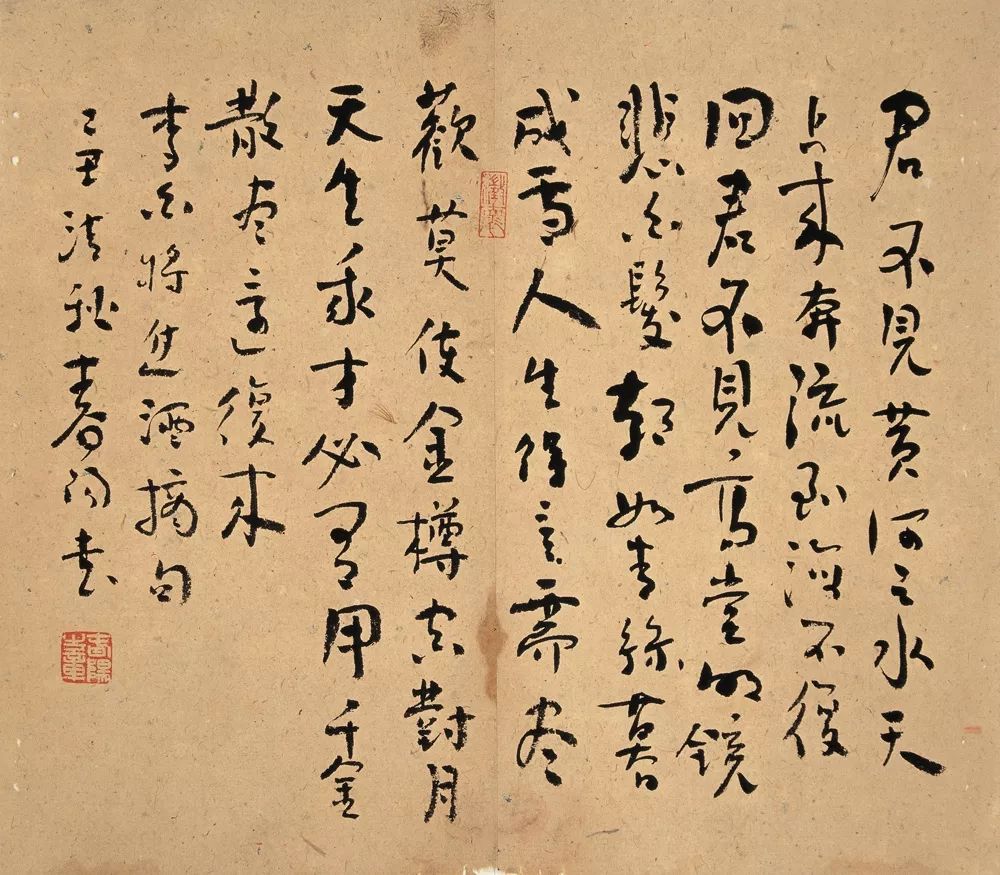 君不見黄河之水天
上来奔流到海不復
回君不見高堂明鏡
悲白髮朝如青絲暮
成雪人生得意需尽
歡莫使金樽空對月
天生我才必有用千金
散尽還復来
李白將进酒摘句
己丑清秋春阳书